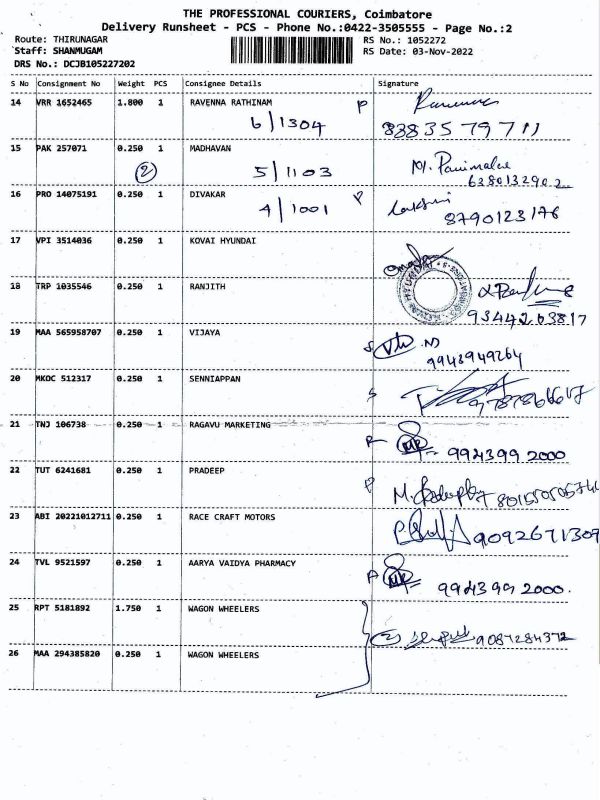 THE PROFESSIONAL COURIERS, Coimbatore
Delivery Runsheet - PCS - Phone No.:0422-3505555 - Page No.:2
Route: THIRUNAGAR RS No.: 1052272
Staff: SHANMUGAM RS Date: 03-Nov-2022
DRS No.: DCJB105227202
S No Consignment No Weight PCS Consignee Details Signature
14 VRR 1652465 1.800 1 RAVENNA RATHINAM P
6/1304 88357 97 11
15 PAK 257071 0.250 1 MADHAVAN
2 5/1103 6380132902
16 PRO 14075191 0.250 1 DIVAKAR P
4/1001 8790123176
17 VPI 3514036 0.250 1 KOVAI HYUNDAI
18 TRP 1035546 0.250 1 RANJITH
9344263817
19 MAA 565958707 0.250 1 VIJAYA
9943949264
20 MKOC 512317 0.250 1 SENNIAPPAN
21 TNJ 106738 0.250 1 RAGAVU MARKETING
994399 2000
22 TUT 6241681 0.250 1 PRADEEP P
23 ABI 20221012711 0.250 1 RACE CRAFT MOTORS
9092671309
24 TVL 9521597 0.250 1 AARYA VAIDYA PHARMACY
994399 2000.
25 RPT 5181892 1.750 1 WAGON WHEELERS
2 9087284372
26 MAA 294385820 0.250 1 WAGON WHEELERS